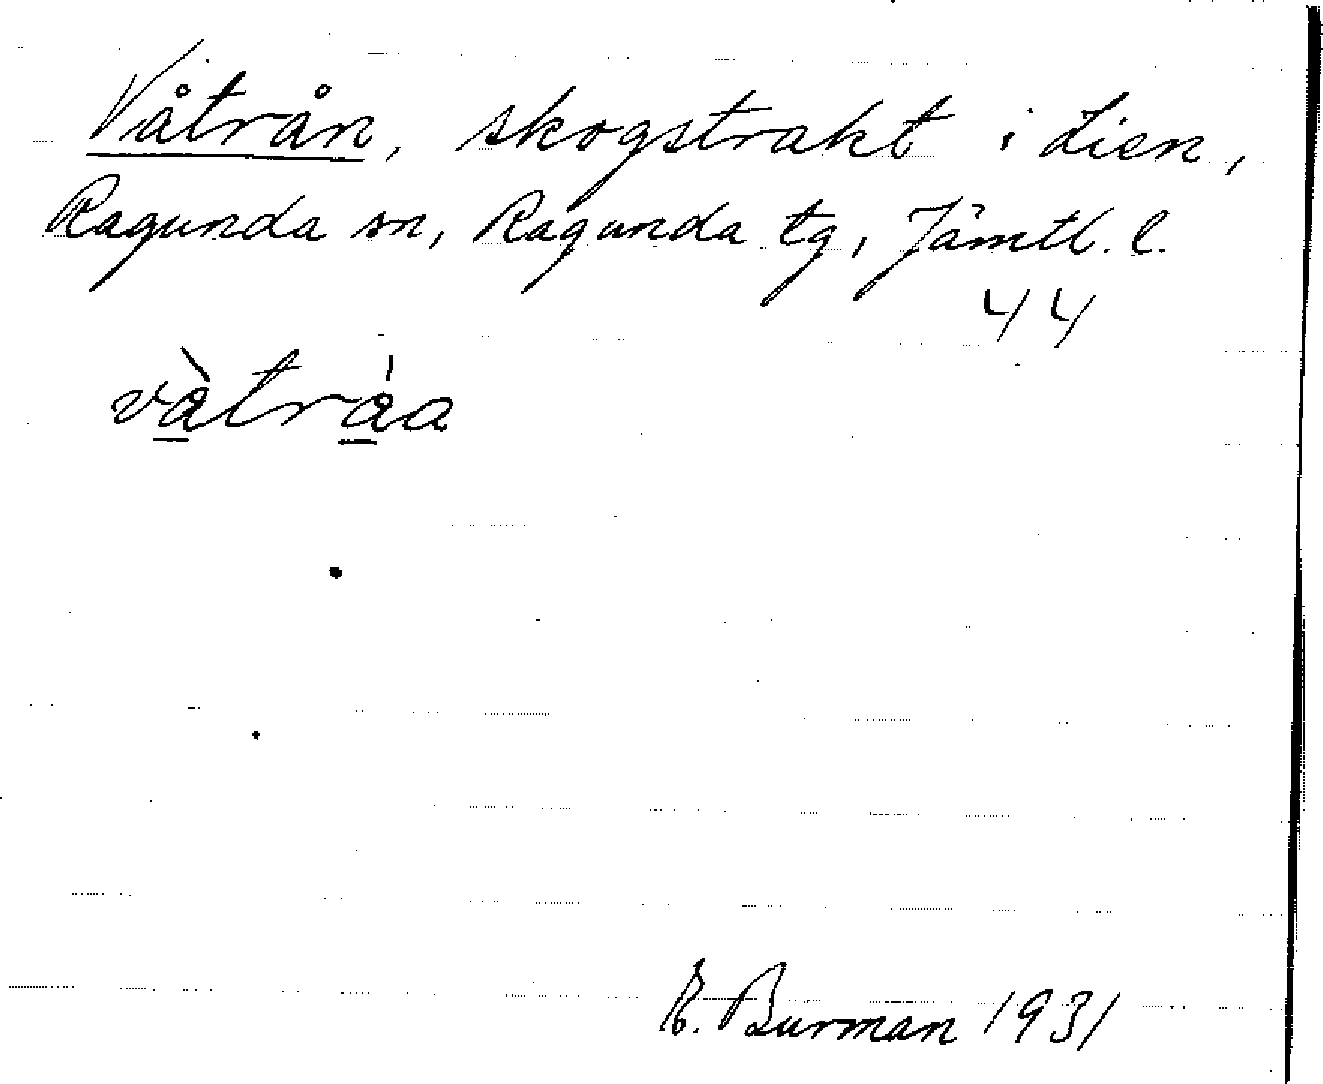 Våtrån, skogstrakt i Lien,
Ragunda sn, Ragunda tg, Jämtl. l.
44
và̱trá̱a
E. Burman 1931